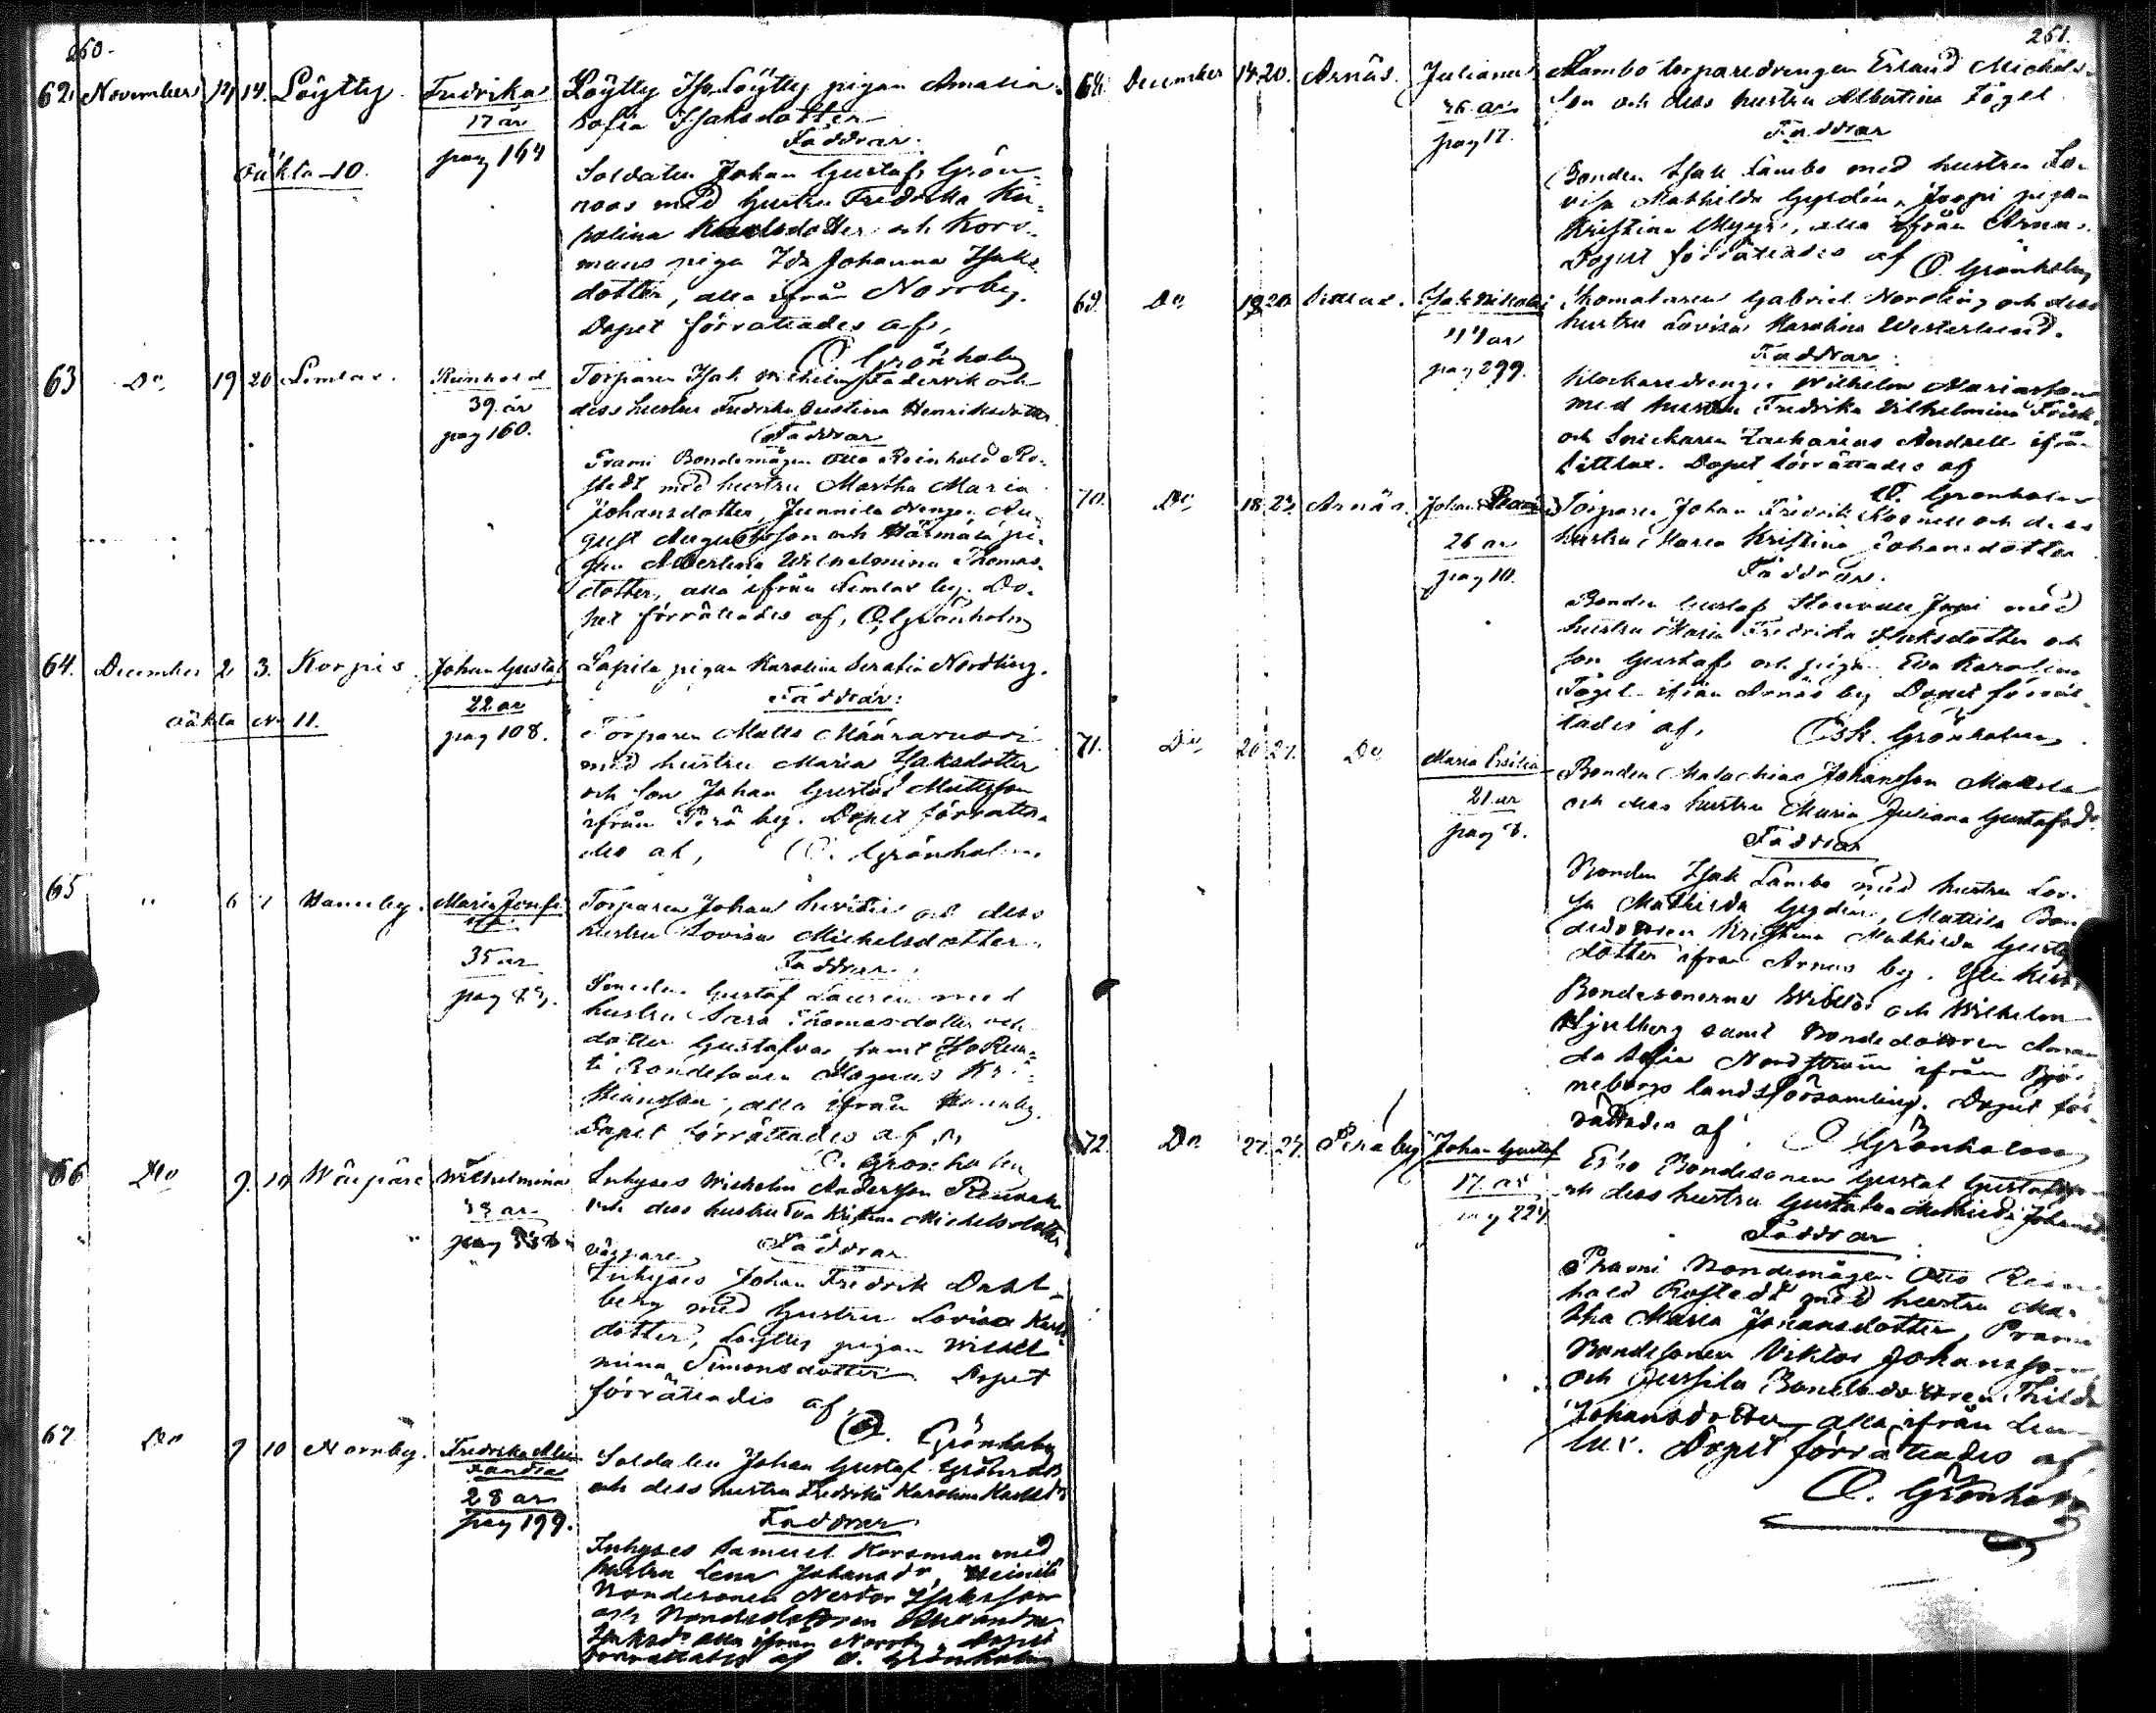 260.
62. November 12 14. Löytty Fredrika Löytty Iso Löytty pigan Amalia
17 år Sofia Isaksdotter
Faddrar
oäkta 10. pag 164
Soldaten Johan Gustaf Grön-
roos med hustru Fredrika Ka-
rolina Karlsdotter och Kors-
mans piga Ida Johanna Isaks-
dotter, alla ifrån Norrby.
Dopet förrättades af,
O. Grönholm
63 Do 19 20 Lemlax. Reinhold Torparen Isak Wilhelm Födervik och
39 år dess hustru Fredrika Gustina Henriksdotter
pag 160. Faddrar
Prami Bondemågen Otto Reinhold Ro-
stedt med hustru Martha Maria
Johansdotter, Junnila drengen Au-
gust Augustsson och Härmälä pi-
gan Albertina Wilhelmina Thomas-
dotter, alla ifrån Lemlax by. Do-
pet förrättades af, O. Grönholm
64. December 2 3. Korpis Johan Gustaf Lapila pigan Karolina Serafia Nordling.
22 år Faddrar:
oäkta No 11. pag 108. Torparen Matts Määränvuori
med hustru Maria Isaksdotter
och son Johan Gustaf Mattsson
ifrån Perä by. Dopet förrätta-
des af, O. Grönholm
65 " 6 7 Hanneby. Maria Josefi-
na Torparen Johan och dess
hustru Lovisa Michelsdotter.
35 år Faddrar
pag
Gustaf Lauren med
hustru Sara Thomasdotter och
dotter Gustafva samt
Bondesonen Magnus Kri-
stiansson, alla ifrån Hanneby.
Dopet förrättades af
O. Grönholm
66 Do 9. 10 Wilhelmina Inhyses Wilhelm Andersson
år och dess hustru Eva Kristina Michelsdotter
pag Faddrar
Inhyses Johan Fredrik Dahl-
berg med hustru Lovisa Karls-
dotter, Löytty pigan Wilhel-
mina Simonsdotter. Dopet
förrättades af,
O. Grönholm
67 Do 9 10 Norrby. Fredrika Alex-
andra Soldaten Johan Gustaf Grönroos
28 år och dess hustru Fredrika Karolina Karlsdr
pag 199. Faddrar
Inhyses Samuel Korsman med
hustru Lena Johansdr, Heinilä
Bondesonen Nestor Isaksson
och Bondedottren Alexandra
Isaksdr alla ifrån Norrby. Dopet
förrättades af O. Grönholm
261.
68. December 14 20. Arnäs. Juliana Lambo torparedrengen Erland Michels-
36 år son och dess hustru Albertina Fogel
pag 17. Faddrar
Bonden Isak Lambo med hustru Lo-
visa Mathilda Gyldén, Joopi pigan
Kristina Myyri, alla ifrån Arnäs.
Dopet förrättades af O. Grönholm
69. Do 19 20 Isak Nikolai Skomakaren Gabriel Nordling och dess
44 år hustru Lovisa Karolina Westerlund.
pag 299. Faddrar
Klockaredrengen Wilhelm Mariasson
med hustru Fredrika Vilhelmina Frisk
och Snickaren Zacharias Andzell ifrån
Sittlax. Dopet förrättades af
O. Grönholm
70. Do 18 23. Arnäs. Johan Torparen Johan Fredrik Kosnell och dess
26 år hustru Maria Kristina Johansdotter
pag 10. Faddrar.
Bonden Gustaf Joopi med
hustru Maria Fredrika Isaksdotter och
son Gustaf och pigan Eva Karolina
Fogel ifrån Arnäs by Dopet förrät-
tades af, Osk. Grönholm
71. Do 20 27. Do Maria Cecilia Bonden Malachias Johansson Mattila
21 år och dess hustru Maria Juliana Gustafsdr.
pag 8. Faddrar
Bonden Isak Lambo med hustru Lovi-
sa Mathilda Gyldén, Mattila Bon-
dedottren Kristina Mathilda Gustafs-
dotter ifrån Arnäs by.
Bondesonerne Viktor och Wilhelm
Hjulberg samt Bondedottren Aman-
da Sofia Nordström ifrån Bjö-
neborgs landsförsamling. Dopet för-
rättades af O. Grönholm
72. Do 27. 27. Perä by Johan Gustaf Esko Bondesonen Gustaf Gustafsson
17 år och dess hustru Gustafva Mathilda Johansdr
pag 224 Faddrar
Prami Bondemågen Otto Rein-
hold Rostedt med hustru Mar-
tha Maria Johansdotter, Prami
Bondesonen Viktor Johansson
och Jussila Bondedottren Hilda
Johansdotter, alla ifrån Lem-
lax. Dopet förrättades af,
O. Grönholm